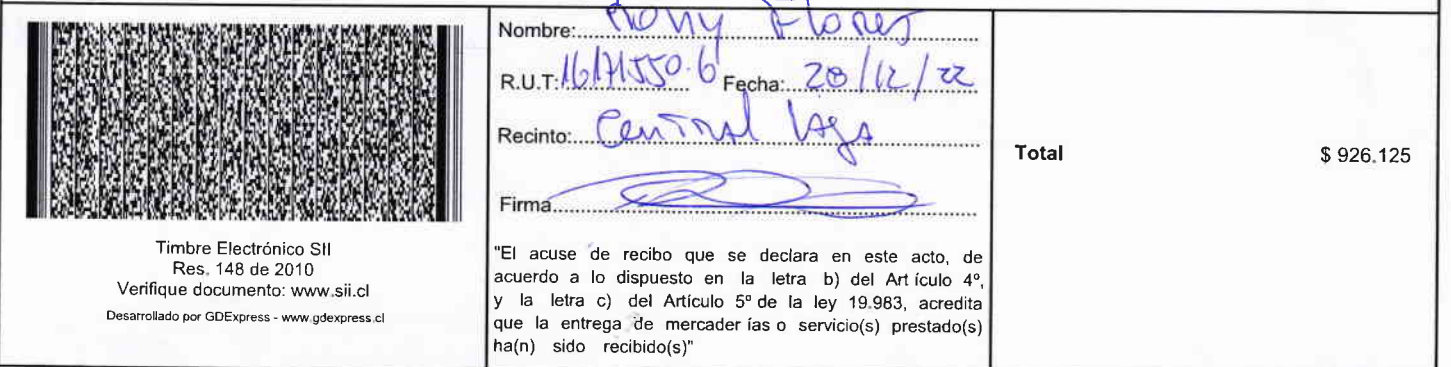 Timbre Electrónico SII
Res. 148 de 2010
Verifique documento: www.sii.cl
Desarrollado por GDExpress - www.gdexpress.cl
Nombre: Rony Flores
R.U.T: 16171550-6 Fecha: 20/12/22
Recinto: Central
Firma
"El acuse de recibo que se declara en este acto, de
acuerdo a lo dispuesto en la letra b) del Art ículo 4º,
y la letra c) del Artículo 5º de la ley 19.983, acredita
que la entrega de mercader ías o servicio(s) prestado(s)
ha(n) sido recibido(s)"
Total $ 926.125